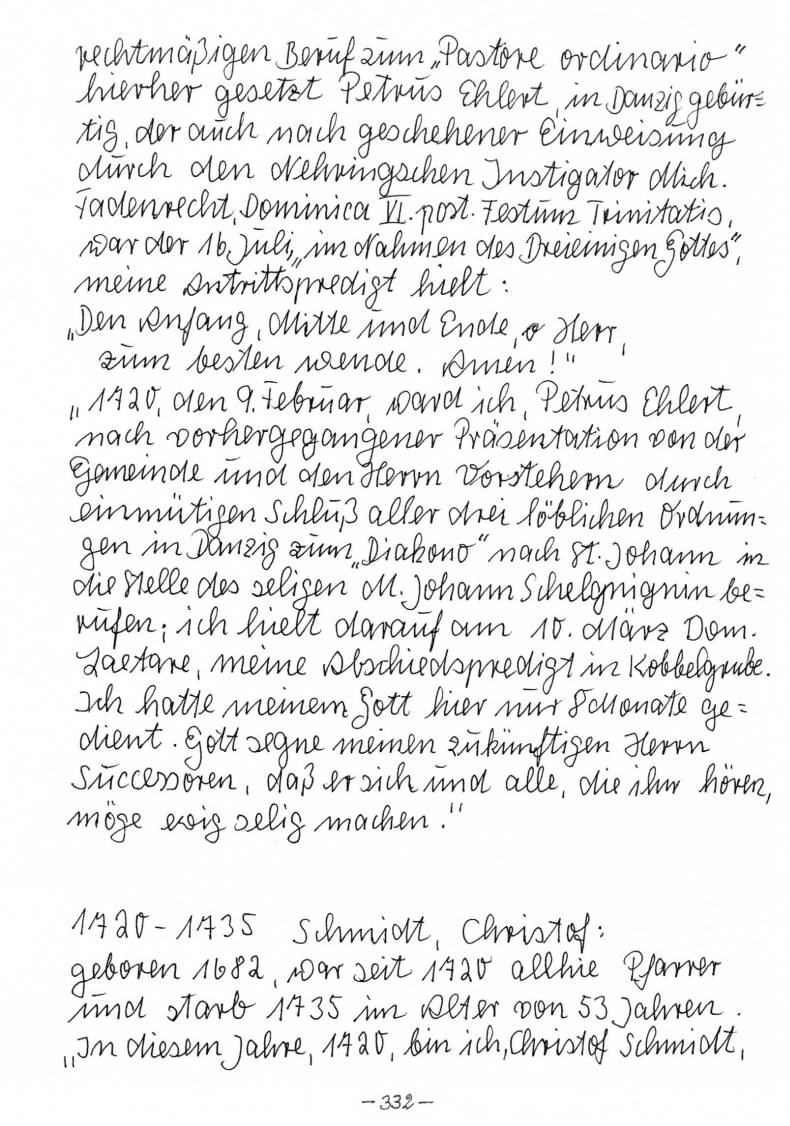 rechtmäßigen Beruf zum „Pastore ordinario“
hierher gesetzt Petrus Ehlert, in Danzig gebür=
tig, der auch nach geschehener Einweisung
durch den Nehringschen Instigator Mich.
Fadenrecht, Dominica VI. post. Festum Trinitatis,
war der 16. Juli, „im Nahmen des Dreieinigen Gottes“,
meine Antrittspredigt hielt:
„Den Anfang, Mitte und Ende, o Herr,
zum besten wende. Amen!“
„1720, den 9. Februar, ward ich, Petrus Ehlert,
nach vorhergegangener Präsentation von der
Gemeinde und den Herrn Vorstehern durch
einmütigen Schluß aller drei löblichen Ordnun=
gen in Danzig zum „Diakono“ nach St. Johann in
die Stelle des seligen M. Johann Schelgnignin be=
rufen; ich hielt darauf am 10. März Dom.
Laetare, meine Abschiedspredigt in Kobbelgrube.
Ich hatte meinem Gott hier nur 8 Monate ge=
dient. Gott segne meinen zukünftigen Herrn
Successoren, daß er sich und alle, die ihn hören,
möge ewig selig machen.“
1720-1735 Schmidt, Christof:
geboren 1682, war seit 1720 allhie Pfarrer
und starb 1735 im Alter von 53 Jahren.
„In diesem Jahre, 1720, bin ich, Christof Schmidt,
- 332 -